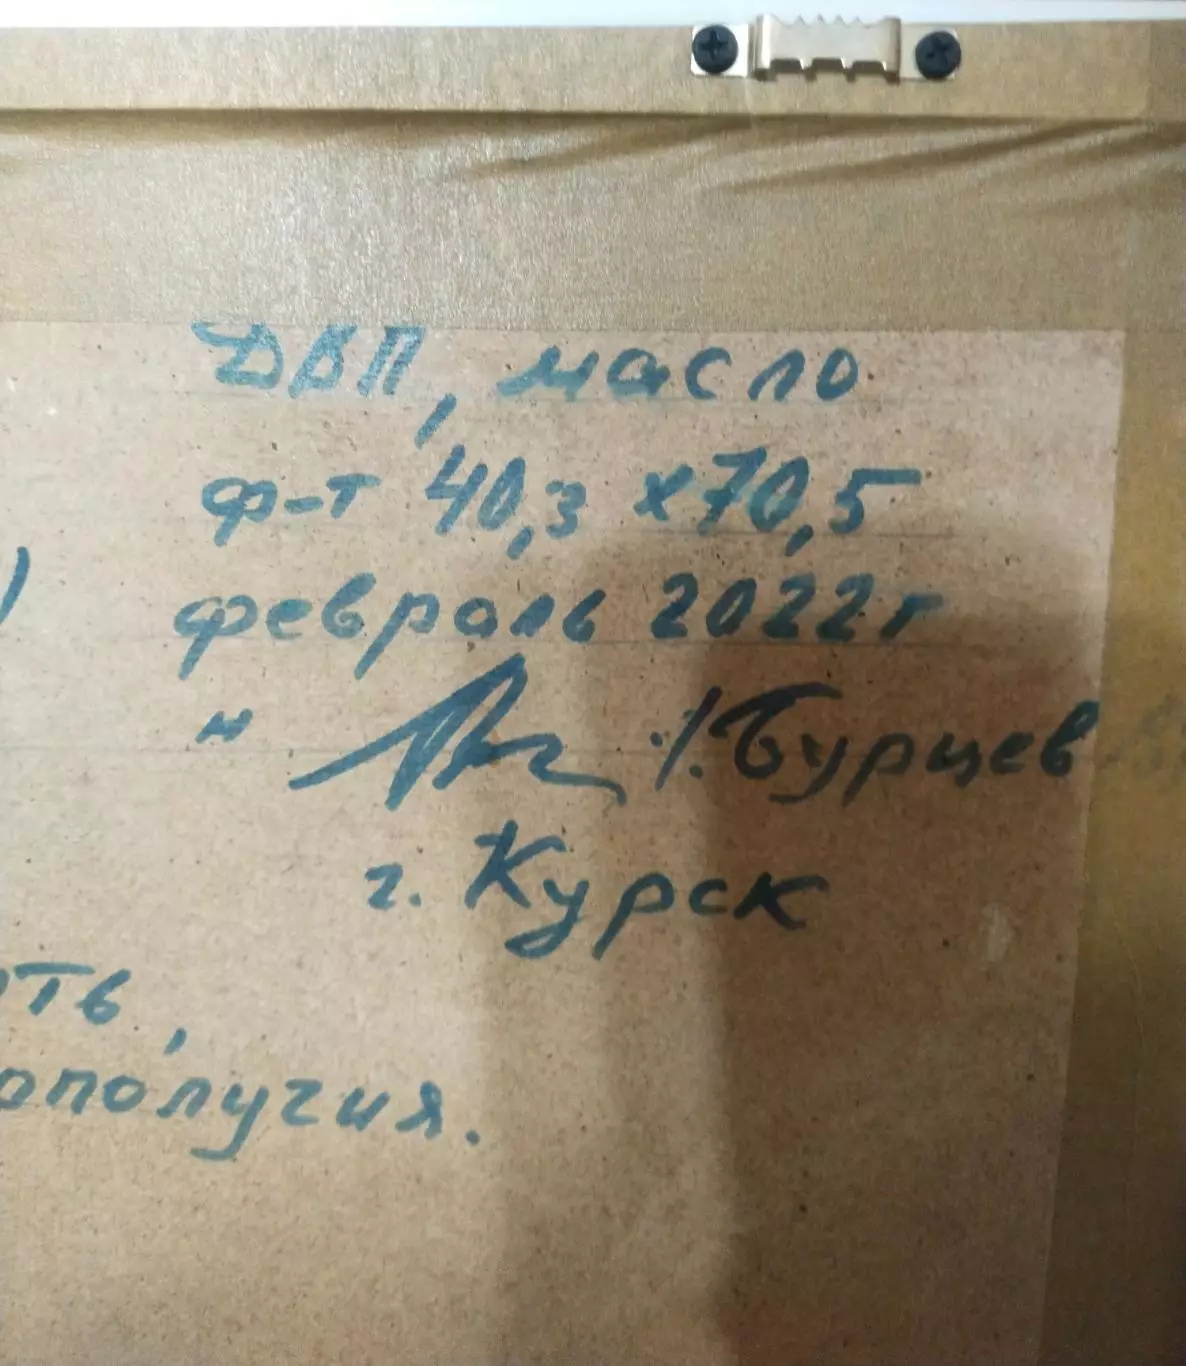 ДВП, масло
ф-т 40,3 х 70,5
февраль 2022г
" /. Бурцев
г. Курск
ть,
ополучия.